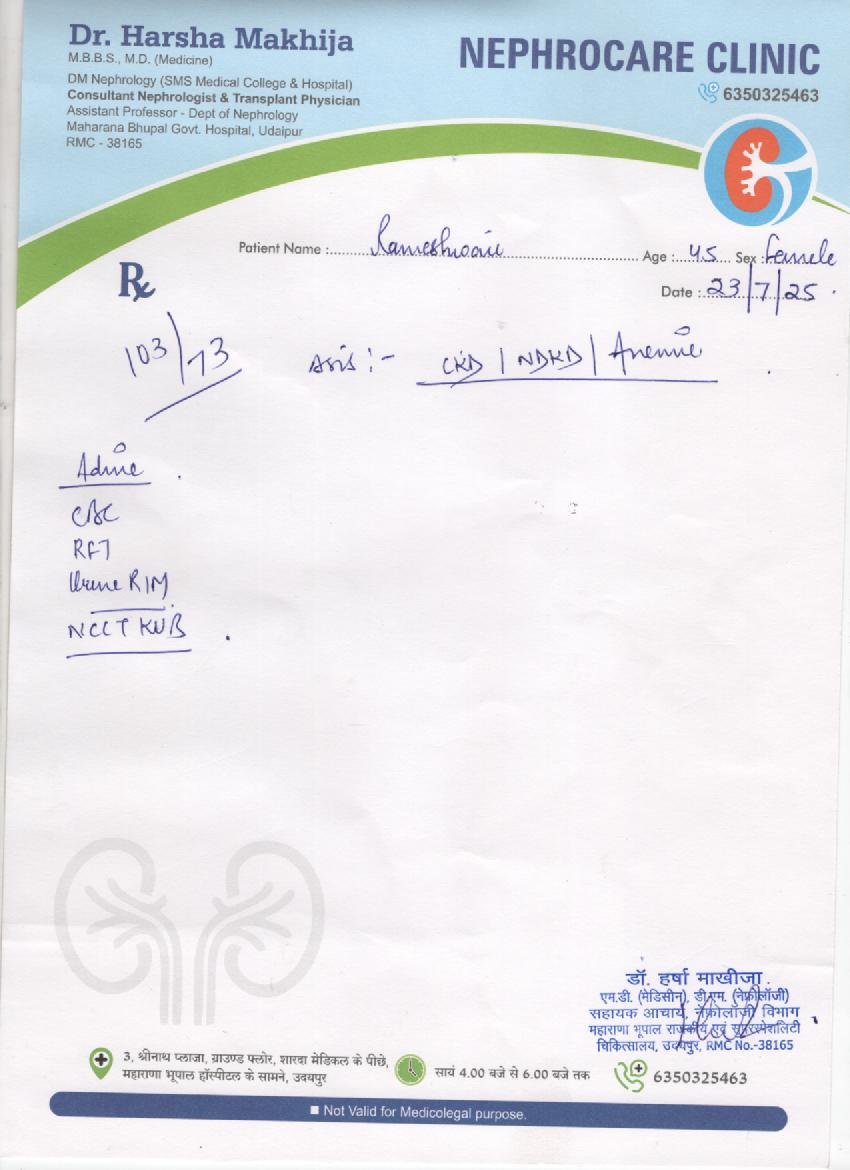 Dr. Harsha Makhija
M.B.B.S., M.D. (Medicine)
DM Nephrology (SMS Medical College & Hospital)
Consultant Nephrologist & Transplant Physician
Assistant Professor - Dept of Nephrology
Maharana Bhupal Govt. Hospital, Udaipur
RMC - 38165
NEPHROCARE CLINIC
6350325463
Patient Name : Rameshwari Age : 45 Sex : Female
Date : 23/7/25
Rx
103/73
CKD / NDKD / Anemia
Advice
CBC
RFT
Urine R/M
NCCT KUB
डॉ. हर्षा माखीजा
एम.डी. (मेडिसीन), डी.एम. (नेफ्रोलॉजी)
सहायक आचार्य, नेफ्रोलॉजी विभाग
महाराणा भूपाल राजकीय एवं सुपरस्पेशलिटी
चिकित्सालय, उदयपुर, RMC No.-38165
3, श्रीनाथ प्लाजा, ग्राउण्ड फ्लोर, शारदा मेडिकल के पीछे,
महाराणा भूपाल हॉस्पीटल के सामने, उदयपुर
सायं 4.00 बजे से 6.00 बजे तक
6350325463
Not Valid for Medicolegal purpose.